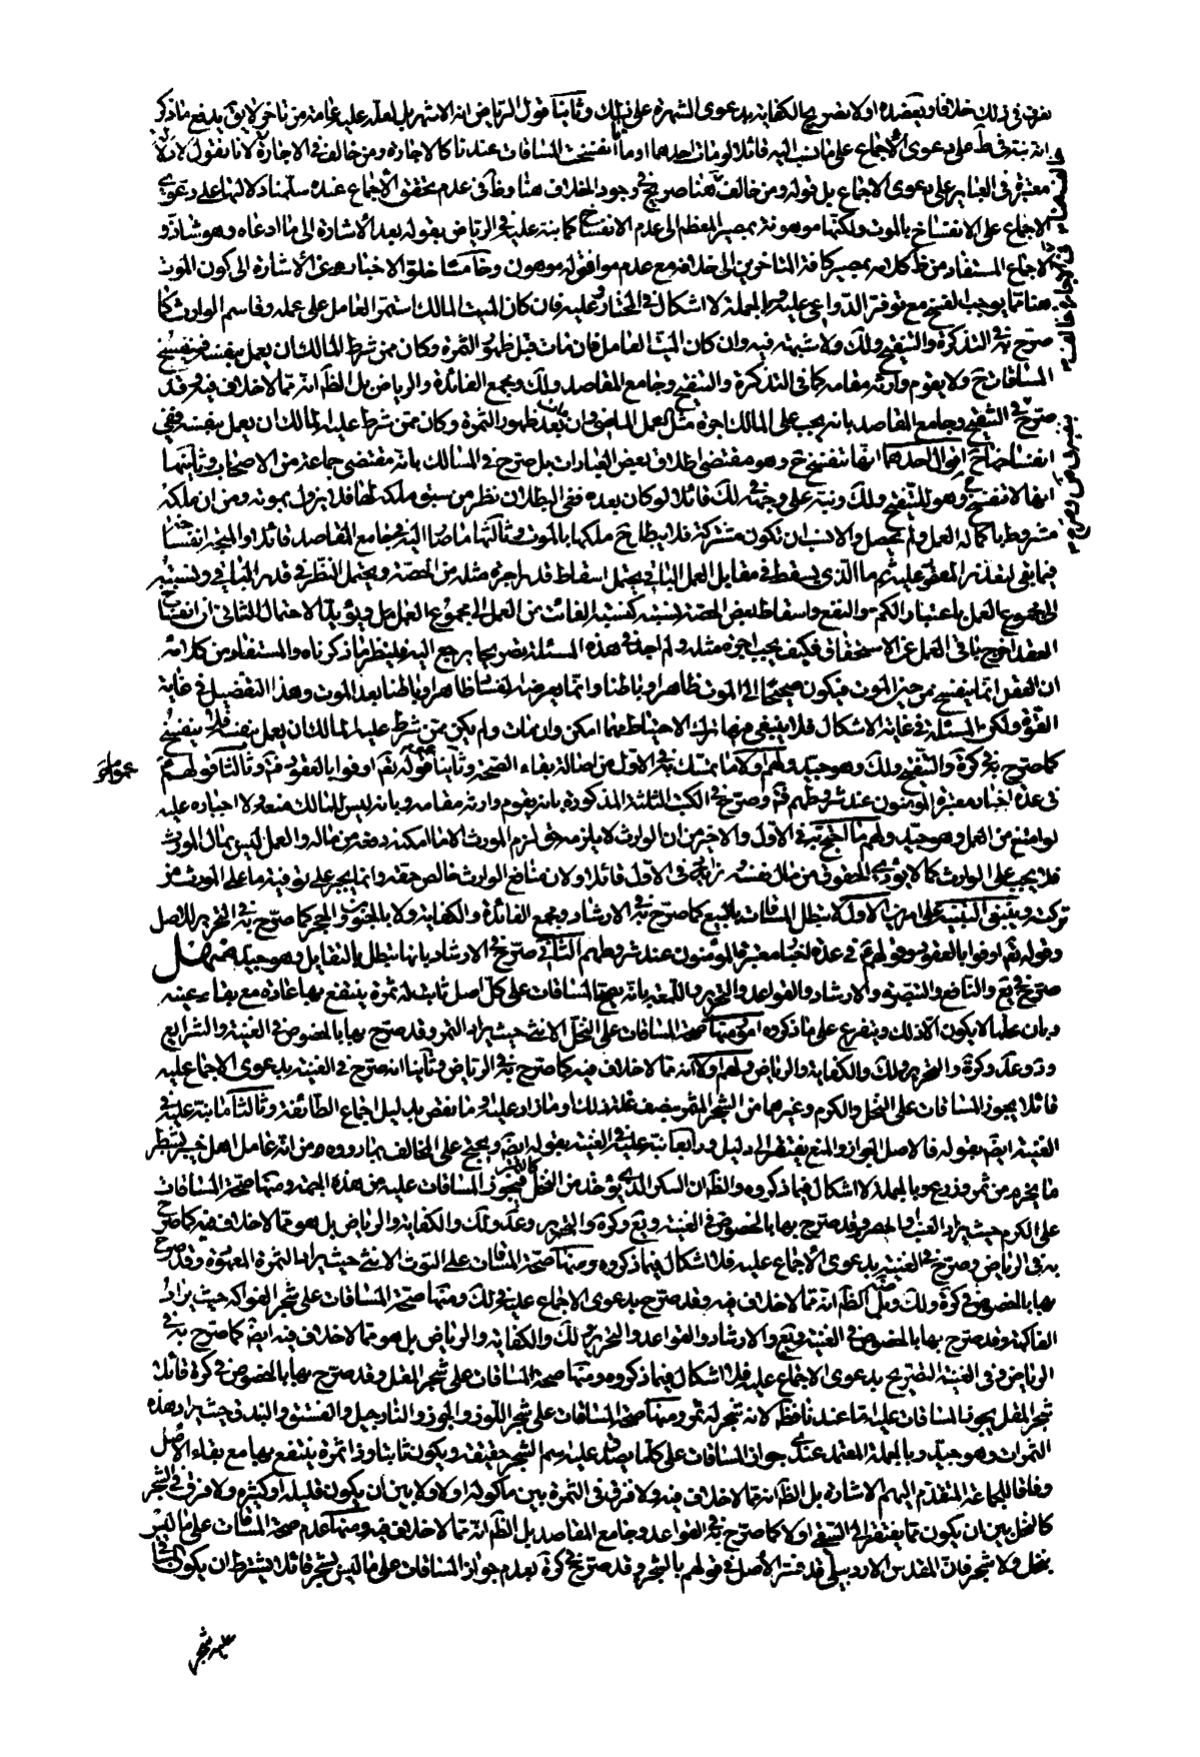 نعرف في ذلك خلافا ويعضده اولا تصريح الكفاية بدعوى الشهرة على ذلك وثانيا قول الرياض انه الاشهر بل لعله عليه عامة من تاخر لا يق يدفع ما ذكر
انه نبه في ط على دعوى الاجماع على ما نسب اليه قائلا لو مات احدهما او ماتا انفسخت المساقات عندنا كالاجارة ومن خالف في الاجارة لانا نقول
معتبرة في الغنا بر على دعوى الاجماع بل قوله ومن خالف هنا صريح في وجود الخلاف هنا وظ في عدم تحقق الاجماع عنده سلمنا دلالتها على دعوى
الاجماع على الانفساخ بالموت ولكنها موهونة بمصير المعظم الى عدم الانفساخ كما نبه عليه في الرياض بقوله بعد الاشارة الى ما ادعاه وهو شاذ و
الاجماع المستفاد من ظ كلامه بمصير كافة المتاخرين الى خلافه مع عدم موافق له موهون وخامسا خلو الاخبار عن الاشارة الى كون الموت
هنا مما يوجب الفسخ مع توفر الدواعي عليه وبالجملة لا اشكال في المختار وعليه فان كان الميت المالك استمر العامل على عمله وقاسم الوارث كما
صرح به في التذكرة والتنقيح ولك ولا شبهة فيه وان كان الميت العامل فان مات قبل ظهور الثمرة وكان ممن شرط المالك ان يعمل بنفسه فينفسخ
المساقات ح ولا يقوم وارثه مقامه كما في التذكرة والتنقيح وجامع المقاصد ولك ومجمع الفائدة والرياض بل الظ انه مما لا خلاف فيه وقد
صرح في التنقيح وجامع المقاصد بانه يجب على المالك اجرة مثل العمل الماضي وان كان بعد ظهور الثمرة وكان ممن شرط عليه المالك ان يعمل بنفسه ففي
انفساخها ح اقوال احدها انها تنفسخ ح وهو مقتضى اطلاق بعض العبارات بل صرح في المسالك بانه مقتضى جماعة من الاصحاب وثانيها
انها لا تنفسخ وهو للتنقيح ولك ونبه على وجه في لك قائلا لو كان بعده ففي البطلان نظر من سبق ملكه لها فلا يزول بموته ومن ان ملكه
مشروط باكماله العمل ولم يحصل والانسب ان تكون مشتركة فلا يبطل ح ملكها بالموت وثالثها ما صار اليه في جامع المقاصد قائلا والمتجه انفساخها
فيما بقي لتعذر المعقود عليه ثم ما الذي يسقط في مقابل العمل الباقي يحتمل اسقاط قدر اجرة مثله من الحصة ويحتمل النظر في قدر الباقي ونسبته
الى مجموع العمل باعتبار الكم والنفع واسقاط بعض الحصة بنسبته كنسبة الفائت من العمل الى مجموع العمل ويؤيد الاحتمال الثاني ان انفساخ
العقد اخرج باقي العمل عن الاستحقاق فكيف يجب اجرة مثله ولم اجد في هذه المسئلة تصريحا يرجع اليه فلينظر ما ذكرناه والمستفاد من كلامه
ان العقد انما ينفسخ من حين الموت فيكون صحيحا الى الموت ظاهرا وباطنا وانما يعرضه الفساد ظاهرا وباطنا بعد الموت وهذا التفصيل في غاية
القوة ولكن المسئلة في غاية الاشكال فلا ينبغي فيها ترك الاحتياط مهما امكن وان مات ولم يكن ممن شرط عليه المالك ان يعمل بنفسه فلا ينفسخ
كما صرح به في كرة والتنقيح ولك وهو جيد ولهم اولا ما تمسك به في الاول من اصالة بقاء الصحة وثانيا قوله تعم اوفوا بالعقود وثالثا قولهم عم
في عدة اخبار معتبرة المومنون عند شروطهم وصرح في الكتب الثلثة المذكورة بانه يقوم وارثه مقامه وبانه ليس للمالك منعه ولا اجباره عليه
لو امتنع من العمل وهو جيد ولهم ما احتج به في الاول والاخير من ان الوارث لا يلزمه حق لزم المورث الا ما امكنه دفعه من ماله والعمل ليس بمال المورث
فلا يجب على الوارث كما لا يؤدي الحقوق من مال نفسه وزاد في الاول قائلا ولان منافع الوارث خالص حقه وانما يجبر على توفية ما على المورث من
تركته وينبغي التنبيه على امرين الاول لا تبطل المساقات بالبيع كما صرح به في الارشاد ومجمع الفائدة والكفاية ولا بالجنون والحجر كما صرح به في التحرير للاصل
وقوله تعم اوفوا بالعقود وقولهم عم في عدة اخبار معتبرة المؤمنون عند شروطهم الثاني صرح في الارشاد بانها تبطل بالتقايل وهو جيد منهل
صرح في يع والنافع والتبصرة والارشاد والقواعد والتحرير واللمعة بانه يصح المساقات على كل اصل ثابت له ثمرة ينتفع بها عادة مع بقاء عينه
وبان عليها لا يكون الا ذلك ويتفرع على ما ذكروه امور منها صحة المساقات على النخل الانثى حيث يراد الثمر وقد صرح بها بالخصوص في الغنية والشرايع
ود وعد وكرة والتحرير ولك والكفاية والرياض ولهم اولا انه مما لا خلاف فيه كما صرح به في الرياض وثانيا انه صرح في الغنية بدعوى الاجماع عليه
قائلا يجوز المساقات على النخل والكرم وغيرهما من الشجر المثمر بنصف غلة ذلك او ما زاد عليه وما نقص بدليل اجماع الطائفة وثالثا ما نبه عليه في
الغنية ايض بقوله فالاصل الجواز والمنع يفتقر الى دليل ورابعا ما نبه عليه في الغنية بقوله ايض ويحتج على المخالف بما رووه من انه عامل اهل خيبر بشطر
ما يخرج من ثمر وزرع وبالجملة لا اشكال فيما ذكروه والظ ان السكر الذي يؤخذ من النخل كالثمر فيجوز المساقات عليه من هذه الجهة ومنها صحة المساقات
على الكرم حيث يراد العنب والحصرم وقد صرح بها بالخصوص في الغنية ويع وكرة والتحرير وعد ولك والكفاية والرياض بل هو مما لا خلاف فيه كما صرح
به في الرياض وصرح في الغنية بدعوى الاجماع عليه فلا اشكال فيما ذكروه ومنها صحة المساقات على التوت الانثى حيث يراد الثمرة المعهودة وقد صرح
بها بالخصوص في كرة ولك وبل الظ انه مما لا خلاف فيه وقد صرح بدعوى الاجماع عليه في لك ومنها صحة المساقات على شجر الفواكه حيث يراد
الفاكهة وقد صرح بها بالخصوص في الغنية ويع والارشاد والقواعد والتحرير ولك والكفاية والرياض بل هو مما لا خلاف فيه ايض كما صرح به في
الرياض وفي الغنية التصريح بدعوى الاجماع عليه فلا اشكال فيما ذكروه ومنها صحة المساقات على شجر المقل وقد صرح بها بالخصوص في كرة قائلا
شجر المقل يجوز المساقات عليه اما عندنا فظ لانه شجر له ثمر ومنها صحة المساقات على شجر اللوز والجوز والنارجيل والفستق والبندق حيث يراد هذه
الثمرات وهو جيد وبالجملة المعتمد عندي جواز المساقات على كلما يصدق عليه اسم الشجر حقيقة ويكون ثابتا وذا ثمرة ينتفع بها مع بقاء الاصل
وفاقا للجماعة المتقدم اليهم الاشارة بل الظ انه مما لا خلاف فيه ولا فرق في الثمرة بين ماكولة او لا ولا بين ان يكون قليلة او كثيرة ولا فرق في الشجر
كالنخل بين ان يكون مما يفتقر الى السقي او لا كما صرح به في القواعد وجامع المقاصد بل الظ انه مما لا خلاف فيه ومنها عدم صحة المساقات على ما ليس
بنخل ولا شجر فان المقدس الاردبيلي قد فسر الاصل في قولهم بالشجر وقد صرح في كرة بعدم جواز المساقات على ما ليس بشجر قائلا يشترط ان يكون
عليه شجر